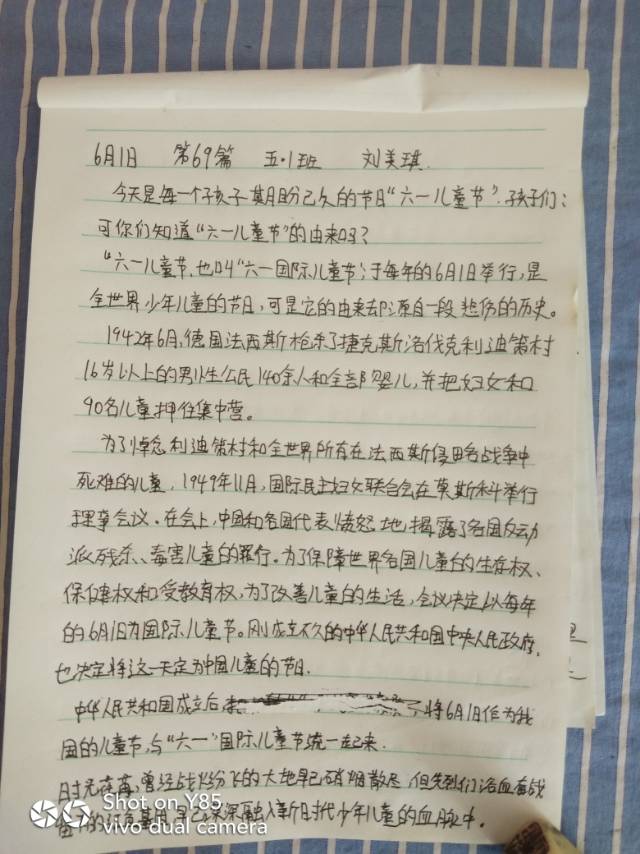 6月1日 第69篇 五·1班 刘美琪.
今天是每一个孩子期盼已久的节日“六一儿童节”.孩子们:
可你们知道“六一儿童节”的由来吗?
“六一儿童节,也叫“六一国际儿童节”,于每年的6月1日举行,是
全世界少年儿童的节日,可是它的由来却源自一段悲伤的历史。
1942年6月,德国法西斯枪杀了捷克斯洛伐克利迪策村
16岁以上的男性公民140余人和全部婴儿,并把妇女和
90名儿童押往集中营。
为了悼念利迪策村和全世界所有在法西斯侵略战争中
死难的儿童,1949年11月,国际民主妇女联合会在莫斯科举行
理事会议。在会上,中国和各国代表愤怒地揭露了各国反动
派残杀、毒害儿童的罪行。为了保障世界各国儿童的生存权、
保健权和受教育权,为了改善儿童的生活,会议决定以每年
的6月1日为国际儿童节。刚成立不久的中华人民共和国中央人民政府,
也决定将这一天定为中国儿童的节日.
中华人民共和国成立后 了将6月1日作为我
国的儿童节,与“六一”国际儿童节统一起来.
时光荏苒,曾经战火纷飞的大地早已硝烟散尽,但先烈们浴血奋战
的红色基因早已深深融入新时代少年儿童的血脉中。
Shot on Y85
vivo dual camera